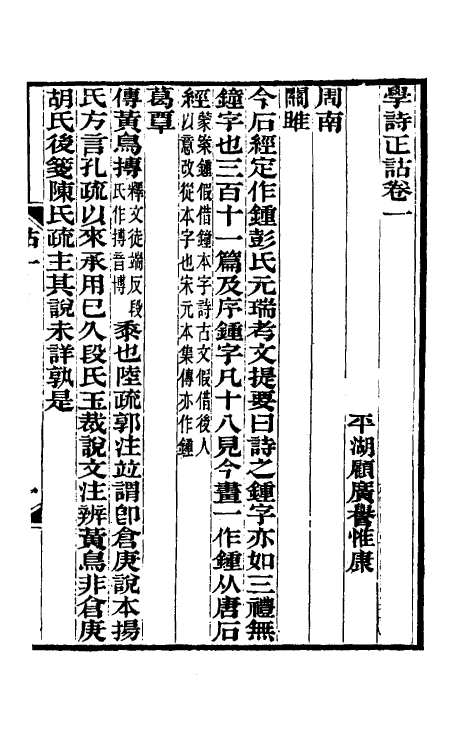 學詩正詁卷一
平湖顧廣譽惟康
周南
關雎
今石經定作鍾彭氏元瑞考文提要曰詩之鍾字亦如三禮無
鐘字也三百十一篇及序鍾字凡十八見今畫一作鍾从唐石
經蒙案鍾假借鐘本字詩古文假借後人
經以意改從本字也宋元本集傳亦作鍾
葛覃
傳黃鳥摶釋文徒端反段
氏作搏音博黍也陸疏郭注竝謂卽倉庚說本揚
氏方言孔疏以來承用已久段氏玉裁說文注辨黃鳥非倉庚
胡氏後箋陳氏疏主其說未詳孰是
詁一
一